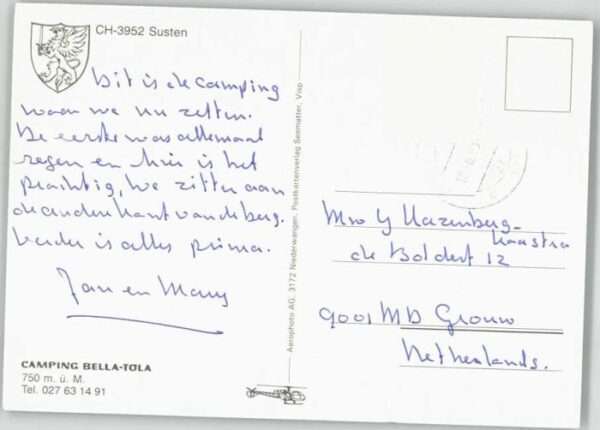 CH-3952 Susten
Dit is de camping
waar we nu zitten.
De eerste was allemaal
regen en hier is het
prachtig, we zitten aan
de andere kant van de berg.
Verder is alles prima.
Jan en Many
CAMPING BELLA-TOLA
750 m. ü. M.
Tel. 027 63 14 91
Aerophoto AG, 3172 Niederwangen, Postkartenverlag Seematter, Visp
Mw Y Hazenberg-
Haasstra
de Boldert 12
9001 MD Grouw
Netherlands.